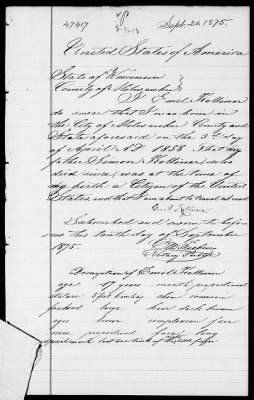 47417
Sept. 20, 1875.
United States of America
State of Wisconsin }
County of Milwaukee }
I Emil
do swear that I was born in
the City of Milwaukee County and
State aforesaid on the 3d day
of April A.D. 1858. That my
father Simon who
died since, was at the time of
my birth a Citizen of the United
States and that I am about to travel abroad
Emil
Subscribed and sworn to before
me this day of September
1875.
Notary Public
Description of Emil
age 17 years mouth proportional
stature 5 feet chin common
forehead large hair dark brown
eyes brown complexion fair
nose proportional face long
special mark lost one